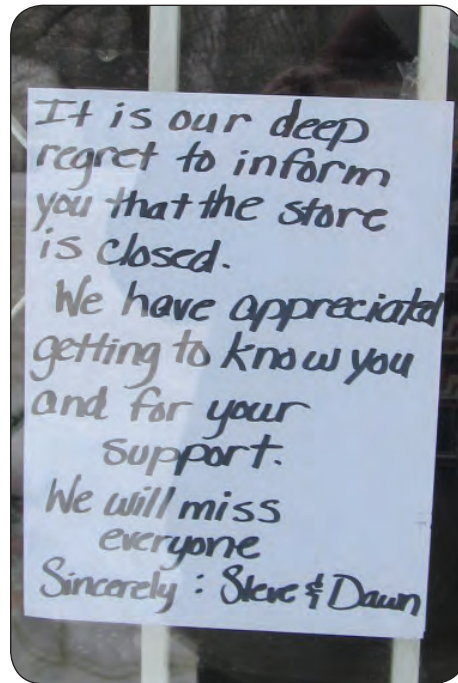 It is our deep
regret to inform
you that the store
is closed.
We have appreciated
getting to know you
and for your
support.
We will miss
everyone
Sincerely : Steve & Dawn